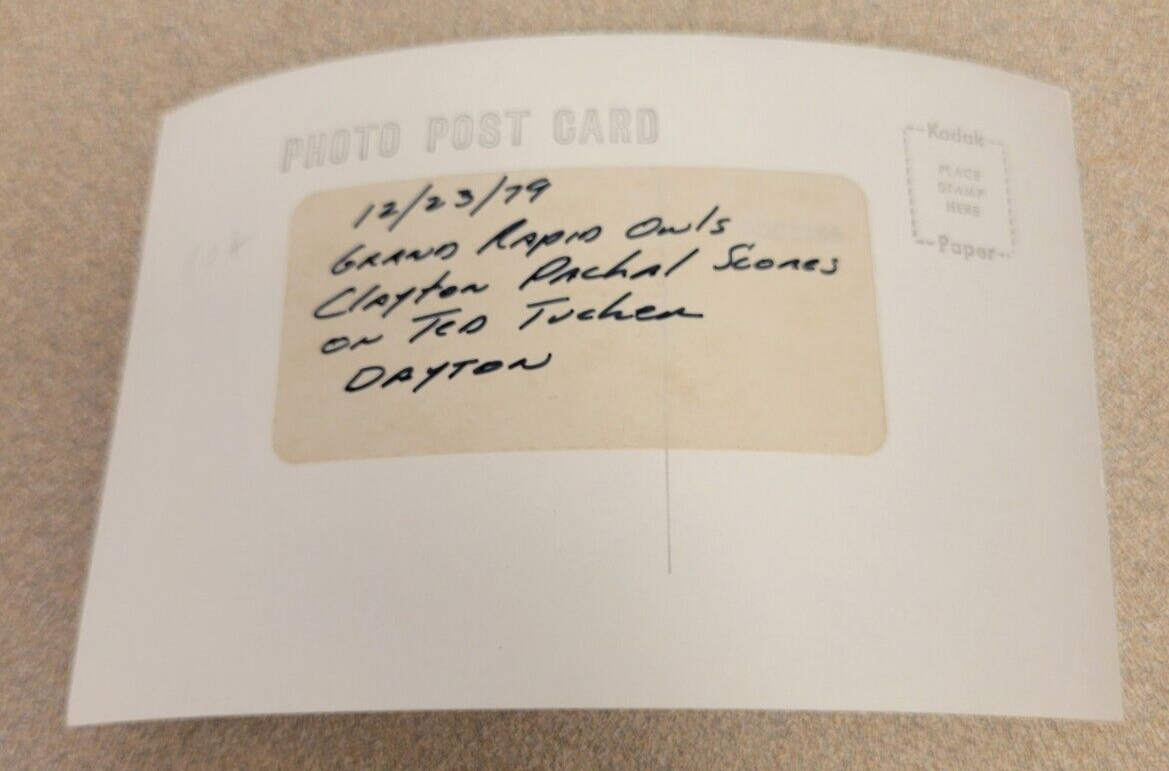 PHOTO POST CARD
--Kodak--
PLACE
STAMP
HERE
--Paper--
12/23/79
GRAND RAPID Owls
Clayton Pachal Scores
on Ted Tucker
DAYTON